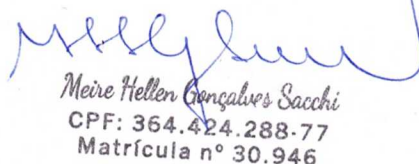 Meire Hellen Gonçalves Sacchi
CPF: 364.424.288-77
Matrícula nº 30.946